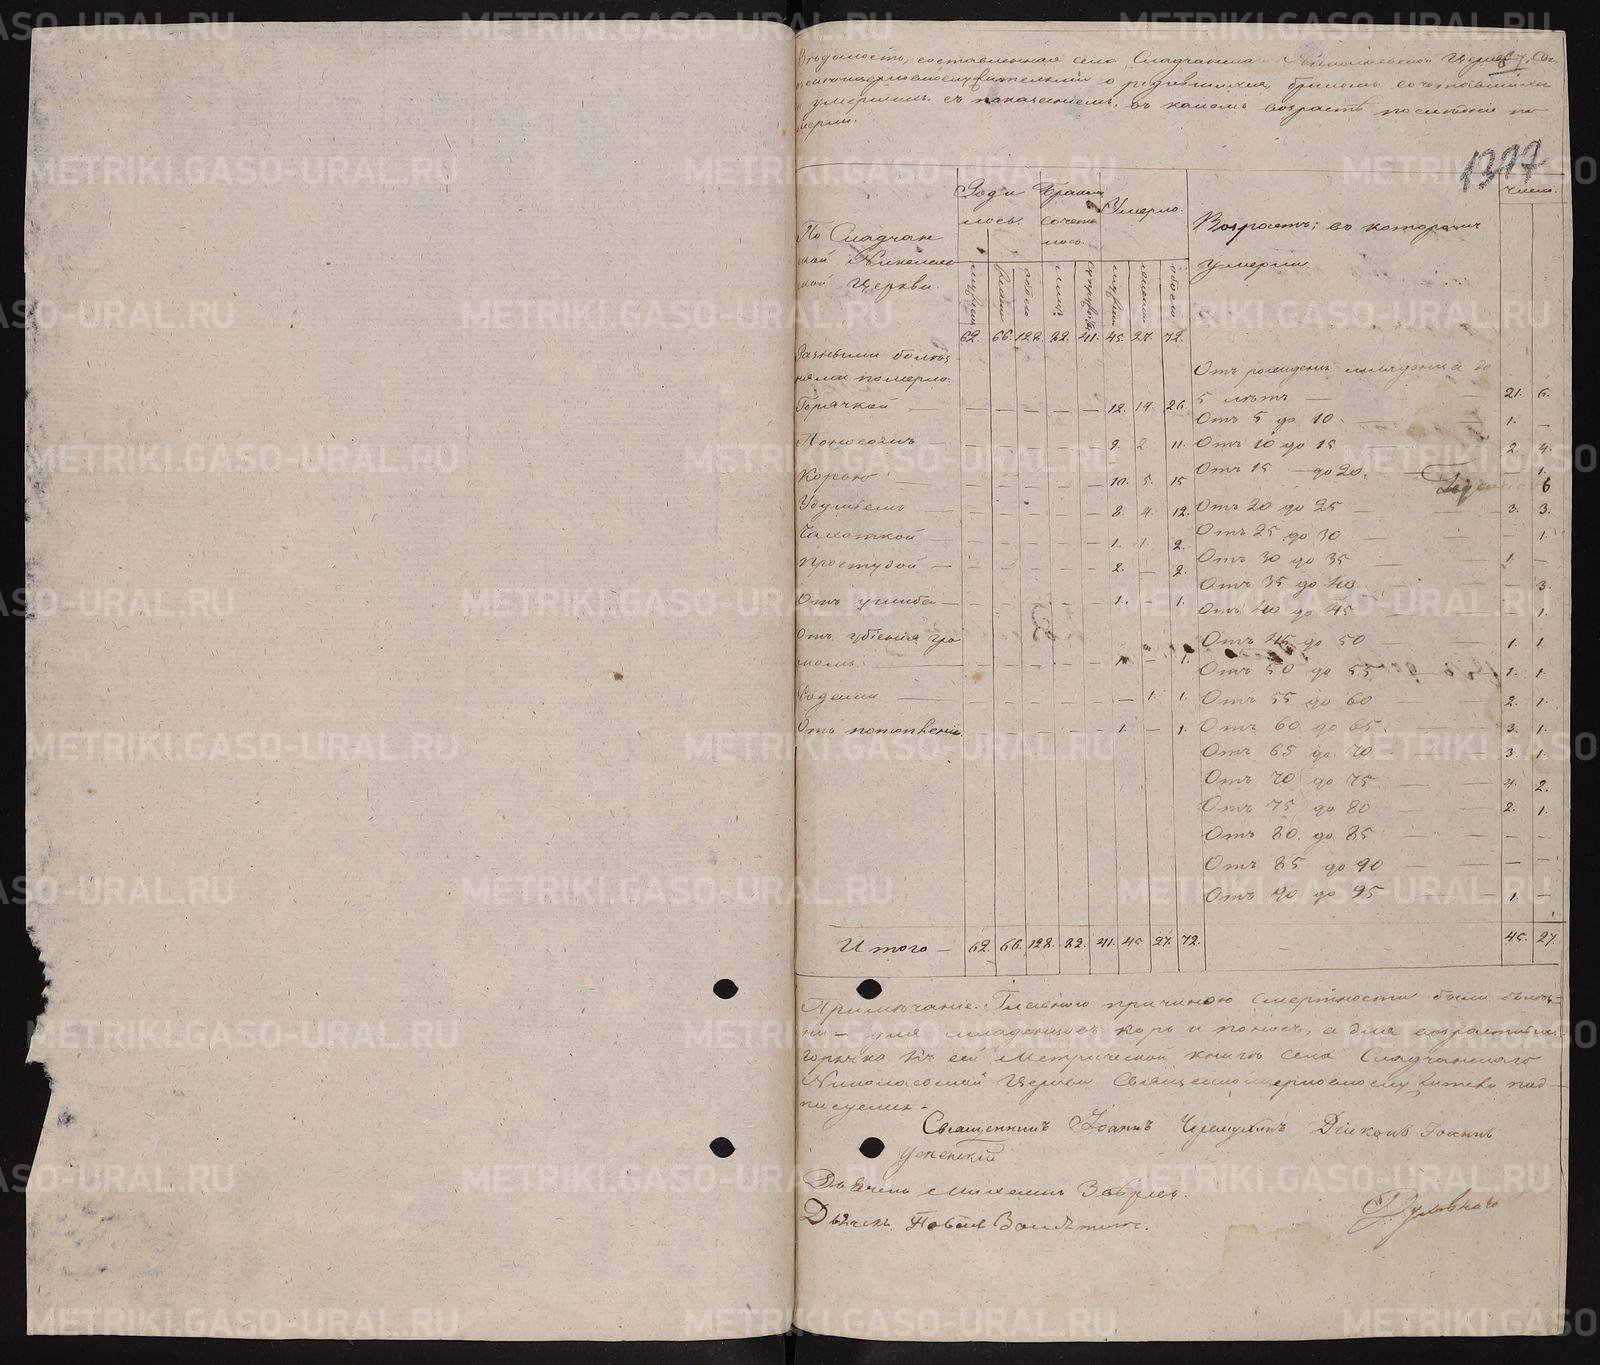 Вѣдомость, составленная села Сладчанскаго Николаевской Церкви, Свя-
щенноцерковнослужителями о родившихся, бракомъ сочетавшихся
и умершихъ съ показаніемъ, въ какомъ возрастѣ послѣдніе по
мерли.
1317
По Сладчан
ской Николаев
ской Церкви.
Роди
лось.
Браком
сочета
лось.
Умерло.
Возрастъ, въ которомъ
умерли.
Число.
обоего
обоего
62. 66. 128. 22. 41. 45. 27. 72.
Разными болѣз
нями померло:
Отъ рожденія младенца до
5 лѣтъ — 21. 6.
Горячкой — — — — — — 12. 14. 26.
Отъ 5 до 10 — 1. —
Поносомъ — — — — — — 9. 2. 11.
Отъ 10 до 15 — 2. 4.
Корью — — — — — — 10. 5. 15
Отъ 15 — до 20. — — 1.
6
Удушьемъ — — — — — — 8. 4. 12.
Отъ 20 до 25 — 3. 3.
Чахоткой — — — — — — 1. 1. 2.
Отъ 25 до 30 — — 1.
Простудой — — — — — — 2. — 2.
Отъ 30 до 35 — 1. —
Отъ 35 до 40 — — 3.
Отъ ушиба — — — — — — 1. — 1.
Отъ 40 до 45 — — 1.
Отъ убіенія гро
момъ. — — — — — — 1. — 1.
Отъ 45 до 50 — 1. 1
Отъ 50 до 55 — 1. 1.
Родами — — — — — — — 1. 1.
Отъ 55 до 60 — 2. 1.
Отъ потопленія. — — — — — 1. — 1.
Отъ 60 до 65 — 3. 1.
Отъ 65 до 70 — 3. 1.
Отъ 70 до 75 — 4. 2.
Отъ 75 до 80 — 2. 1.
Отъ 80. до 85 — — —
Отъ 85 до 90 — — —
Отъ 90 до 95 — 1. —
Итого — 62. 66. 128. 22. 41. 45. 27. 72. 45. 27.
Примѣчаніе. Главною причиною смертности были болѣз-
ни — для младенцевъ корь и поносъ, а для возрастныхъ
горячка. Къ сей Метрической книгѣ села Сладчанскаго
Николаевской Церкви Священноцерковнослужители под-
писуемся.
Священникъ Іоаннъ Діаконъ Іоаннъ
Успенскій
Дьячекъ Михаилъ
Дьячекъ
METRIKI.GASO-URAL.RU